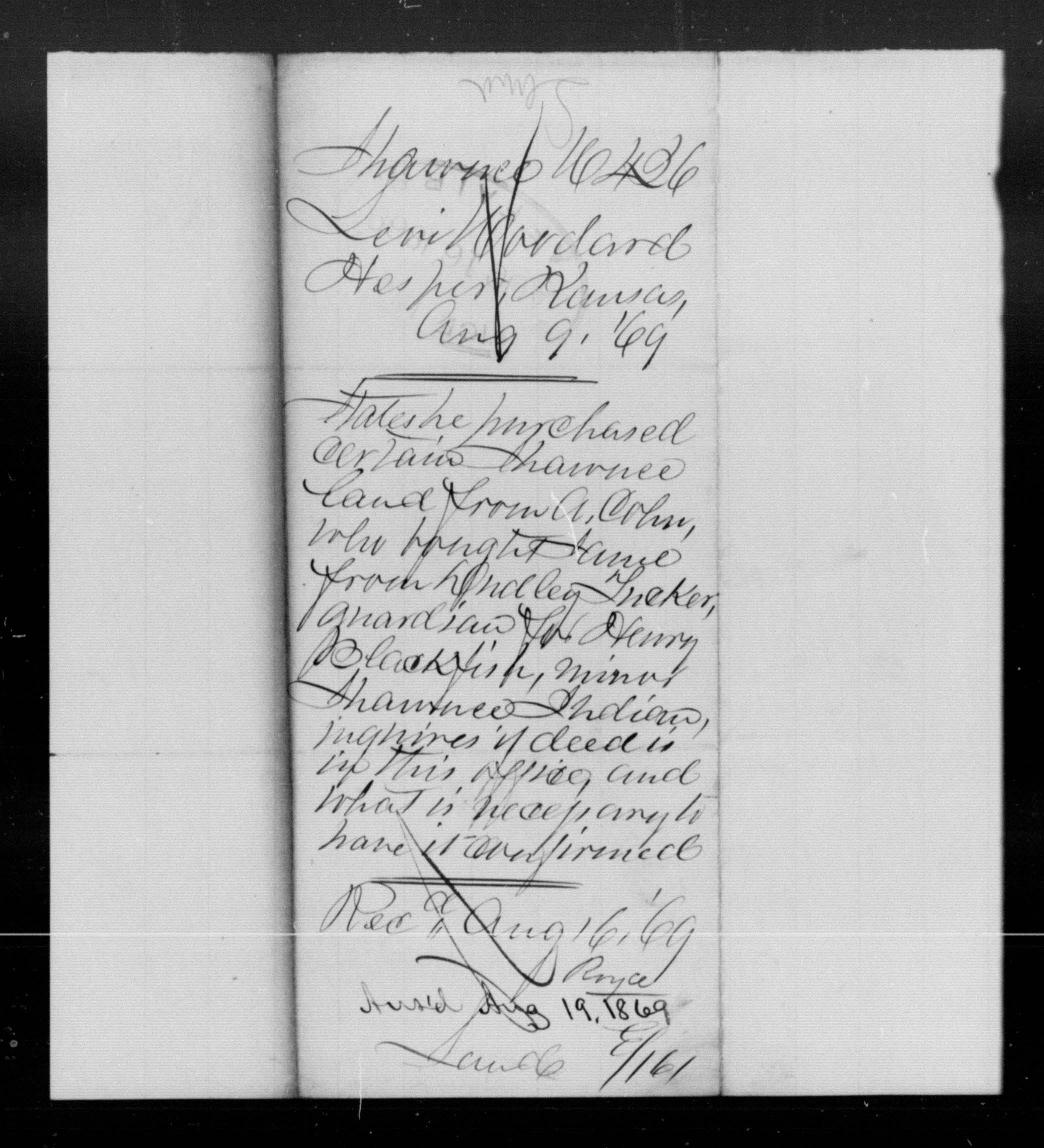 Shawnee W 436
Levi Woodard
Hesper, Kansas,
Aug 9, '69
States he purchased
certain Shawnee
land from A. Cohn,
who bought same
from Lindley Tucker,
guardian for Henry
Blackfish, minor
Shawnee Indian,
inquires if deed is
in this office, and
what is necessary to
have it confirmed
Recd Aug 16, '69
Royce
Ans'd Aug 19, 1869
Land